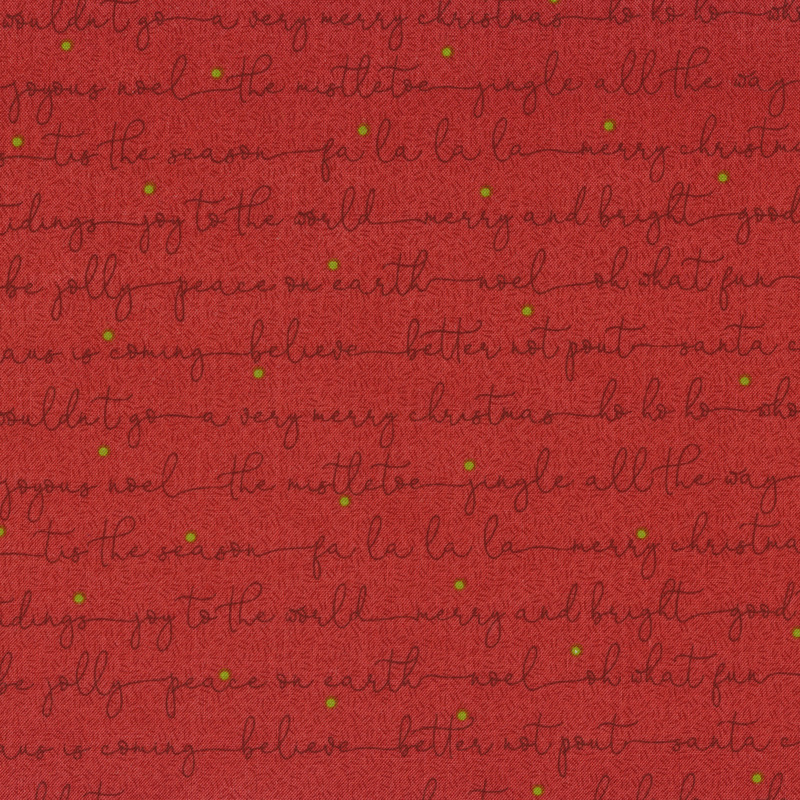 wouldn't go a very merry christmas ho ho ho
joyous noel the mistletoe jingle all the way
tis the season fa la la la merry christma
tidings joy to the world merry and bright good
be jolly peace on earth noel oh what fun
aus is coming believe better not pout santa c
ouldn't go a very merry christmas ho ho ho who
joyous noel the mistletoe jingle all the way
tis the season fa la la la merry christma
tidings joy to the world merry and bright good
be jolly peace on earth noel oh what fun
aus is coming believe better not pout santa c